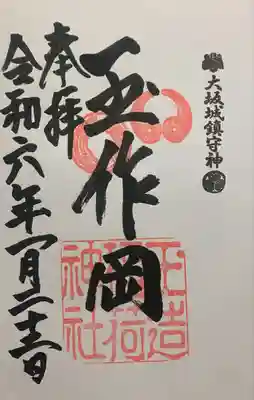 大坂城鎮守神
玉作岡
玉造稲荷神社
奉拝
令和六年一月二十三日